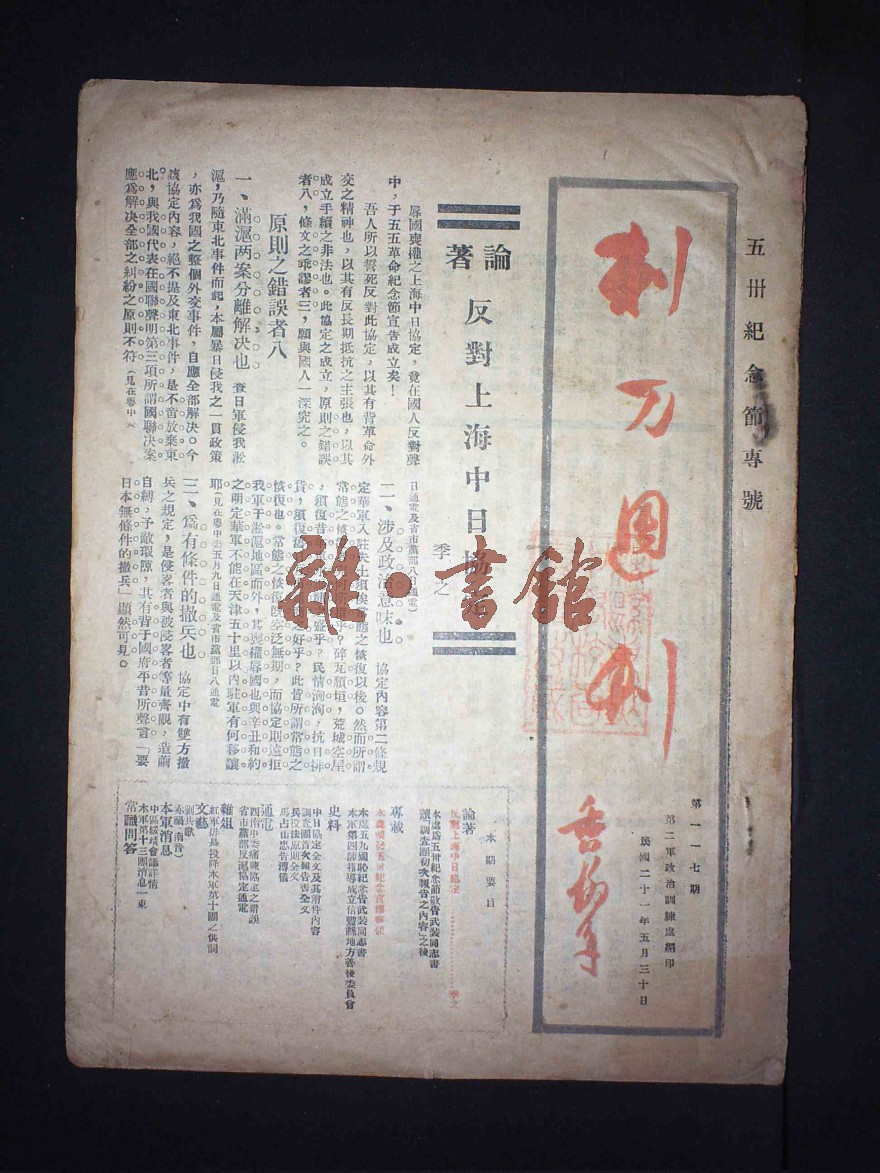 五卅紀念節專號
刺刀週刊
香翰屏
第一一七期
第二軍政治訓練處編印
民國二十一年五月三十日
論著
反對上海中日協定
季之
辱國喪權之上海中日協定，竟在國人反對聲
中，于五五革命紀念節宣告成立矣！
吾人所以誓死反對此協定，以其有背革命外
交之精神也，以其有反長期抵抗之主張也，以其
成立手續之非法也。此協定之成立，原則之錯誤
者八，條文之乖謬者三，願與國人一深究之。
原則之錯誤者八
一、滿滬兩案分離解決也 查日軍侵我淞
滬，乃隨東北事件而起，本屬暴日侵我之一貫政策
，亦爲我國之整個外交事件，自應全部解決。今
該協定內容，絕不提及東北事件，是不啻放棄東
北，與我國代表在國聯聲明第三項所謂國聯決案
應爲解決全部之糾紛之原則不符（見在粵中
日通電及省市黨部八日通電）
二、涉及政治意味也 協定內容第二條規
定華軍入駐失土須俟常態之恢復以後。然而所謂
常態之恢
，須復昔
貨，須復
恢復也。常態之恢復
我軍于淞滬地區而外，其喪權辱國也與辛丑和約
之明定華軍不能在天津五十里以內駐軍有何移讓
耶（見在粵中委五月九日通電及省市黨部日八通電
三、爲有條件的撤兵也 協定中有雙方撤
兵之規定，是侵害者與被侵害者等量齊觀，造繭
自縛，予敵環隙，其有背于國府平昔所聲言「要
日本無條件的撤兵」顯然可見。
雜·書館
本期要目
論著
反對上海中日協定 季之
本處爲五卅紀念節敬告武裝同志書
讀「調查團初次報告之內容」之後
專載
本處頒發五卅紀念宣傳
本處五九國恥紀念告武裝同志書
本軍第四師指導成立信豐縣地方善後委員會
史料
中日協定全文及其附件內容
調查團首次報告書全文
民投法原則全文
馬占山忠告溥儀
通電
四南中委痛陳協定之錯誤
省市黨部反滬協定通電
雜俎
紅軍排長投降本軍第十團之供詞
文藝
剿共歌
赤禍（南音）
本軍消息
中區綏靖會議詳情
本軍第十三團消息一束
常識問答